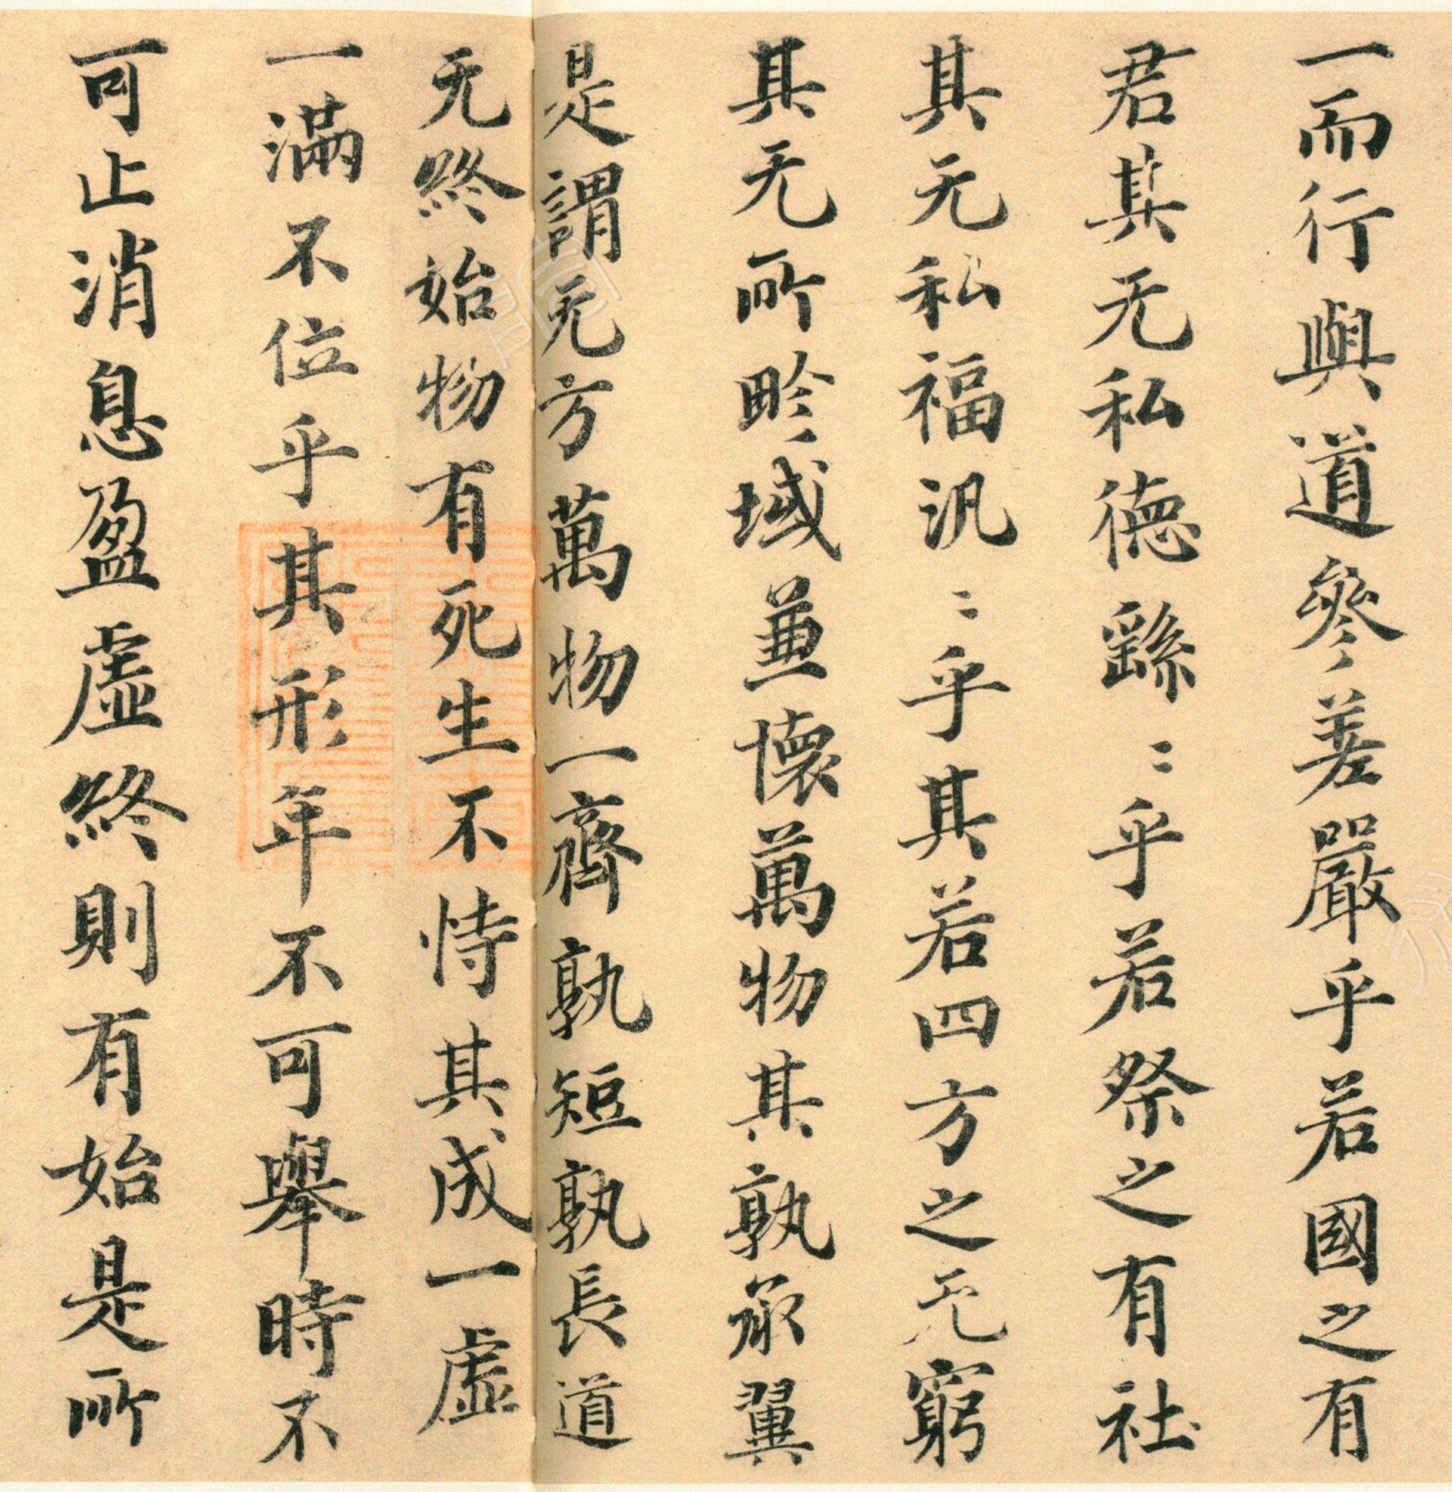 一而行與道參差嚴乎若國之有
君其无私德繇〻乎若祭之有社
其无私福汎〻乎其若四方之无窮
其无所畛域兼懷萬物其孰承翼
是謂无方萬物一齊孰短孰長道
无終始物有死生不恃其成一虛
一滿不位乎其形年不可舉時不
可止消息盈虛終則有始是所